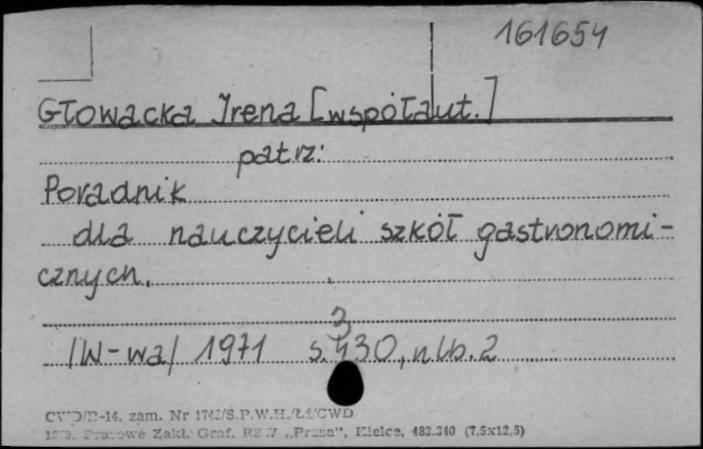 161654
Głowacka Irena [współaut.]
patrz:
Poradnik
dla nauczycieli szkół gastronomi-
cznych.
3
/W-wa/ 1971 s. 430, nlb. 2
zam. Nr
Zakł. Graf. „Prasa", Kielce, 483.340 (7,5x12,5)